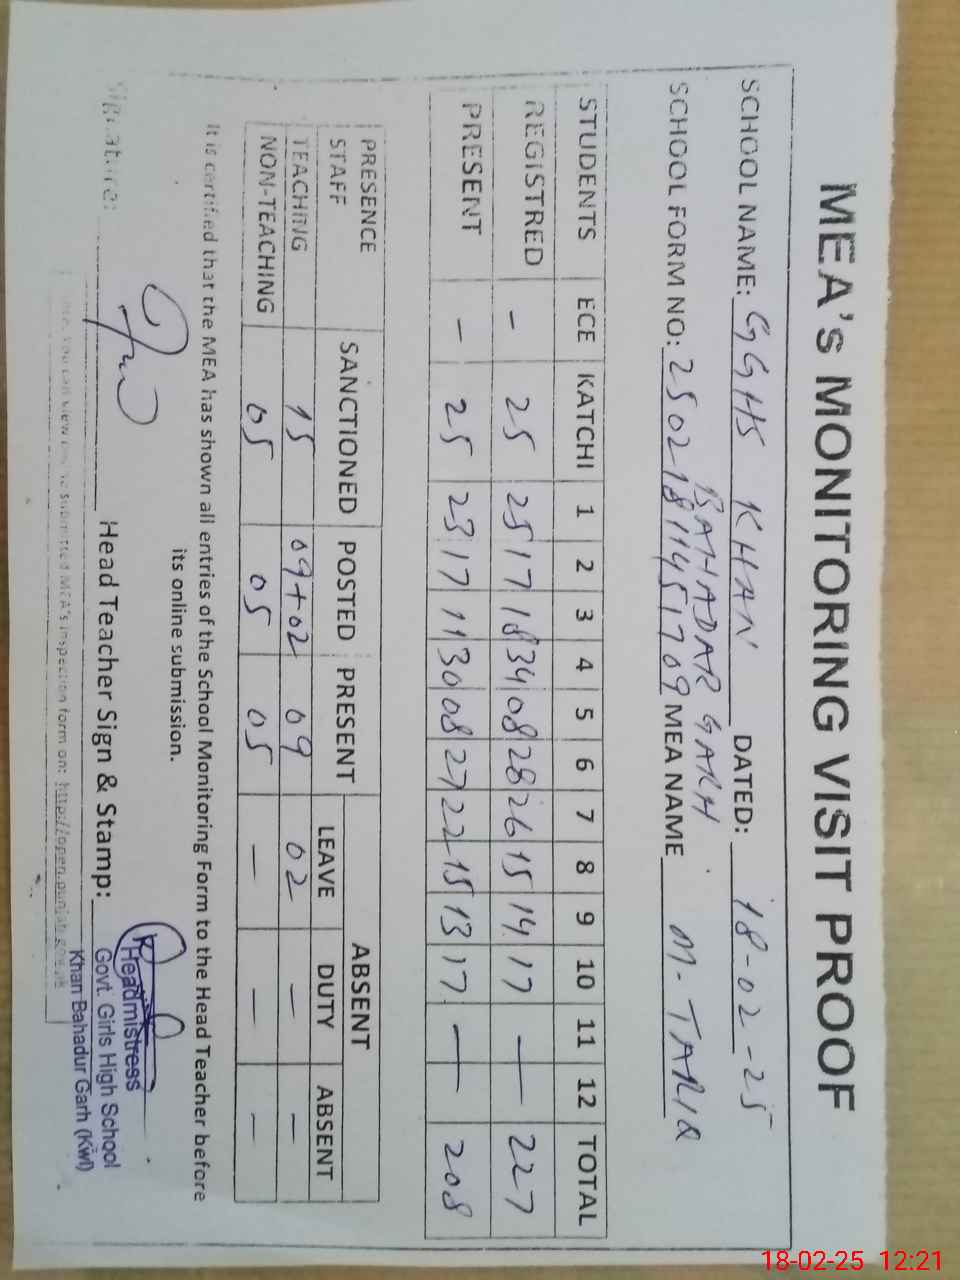 MEA's MONITORING VISIT PROOF
SCHOOL NAME: GGHS KHAN BAHADAR GARH DATED: 18-02-25
SCHOOL FORM NO: 25021811451709 MEA NAME M. TARIQ
STUDENTS ECE KATCHI 1 2 3 4 5 6 7 8 9 10 11 12 TOTAL
REGISTRED - 25 25 17 18 34 08 28 26 15 14 17 — 227
PRESENT - 25 23 17 11 30 08 27 22 15 13 17 — 208
PRESENCE STAFF SANCTIONED POSTED PRESENT ABSENT
LEAVE DUTY ABSENT
TEACHING 15 09+02 09 02 - -
NON-TEACHING 05 05 05 - - -
It is certified that the MEA has shown all entries of the School Monitoring Form to the Head Teacher before
its online submission.
Signature: Head Teacher Sign & Stamp:
Headmistress
Govt. Girls High School
Khan Bahadur Garh (Kwl)
You can view submitted MEA's inspection form on: http://open.punjab.gov.pk
18-02-25 12:21